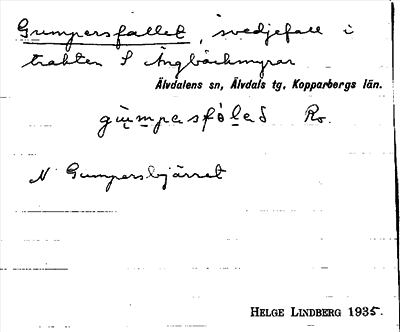 Gumpersfallet, svedjefall i
trakten S Ängbäckmyran
Älvdalens sn, Älvdals tg, Kopparbergs län.
gumpesfåled Ro.
N Gumpersbjärret
HELGE LINDBERG 1935.